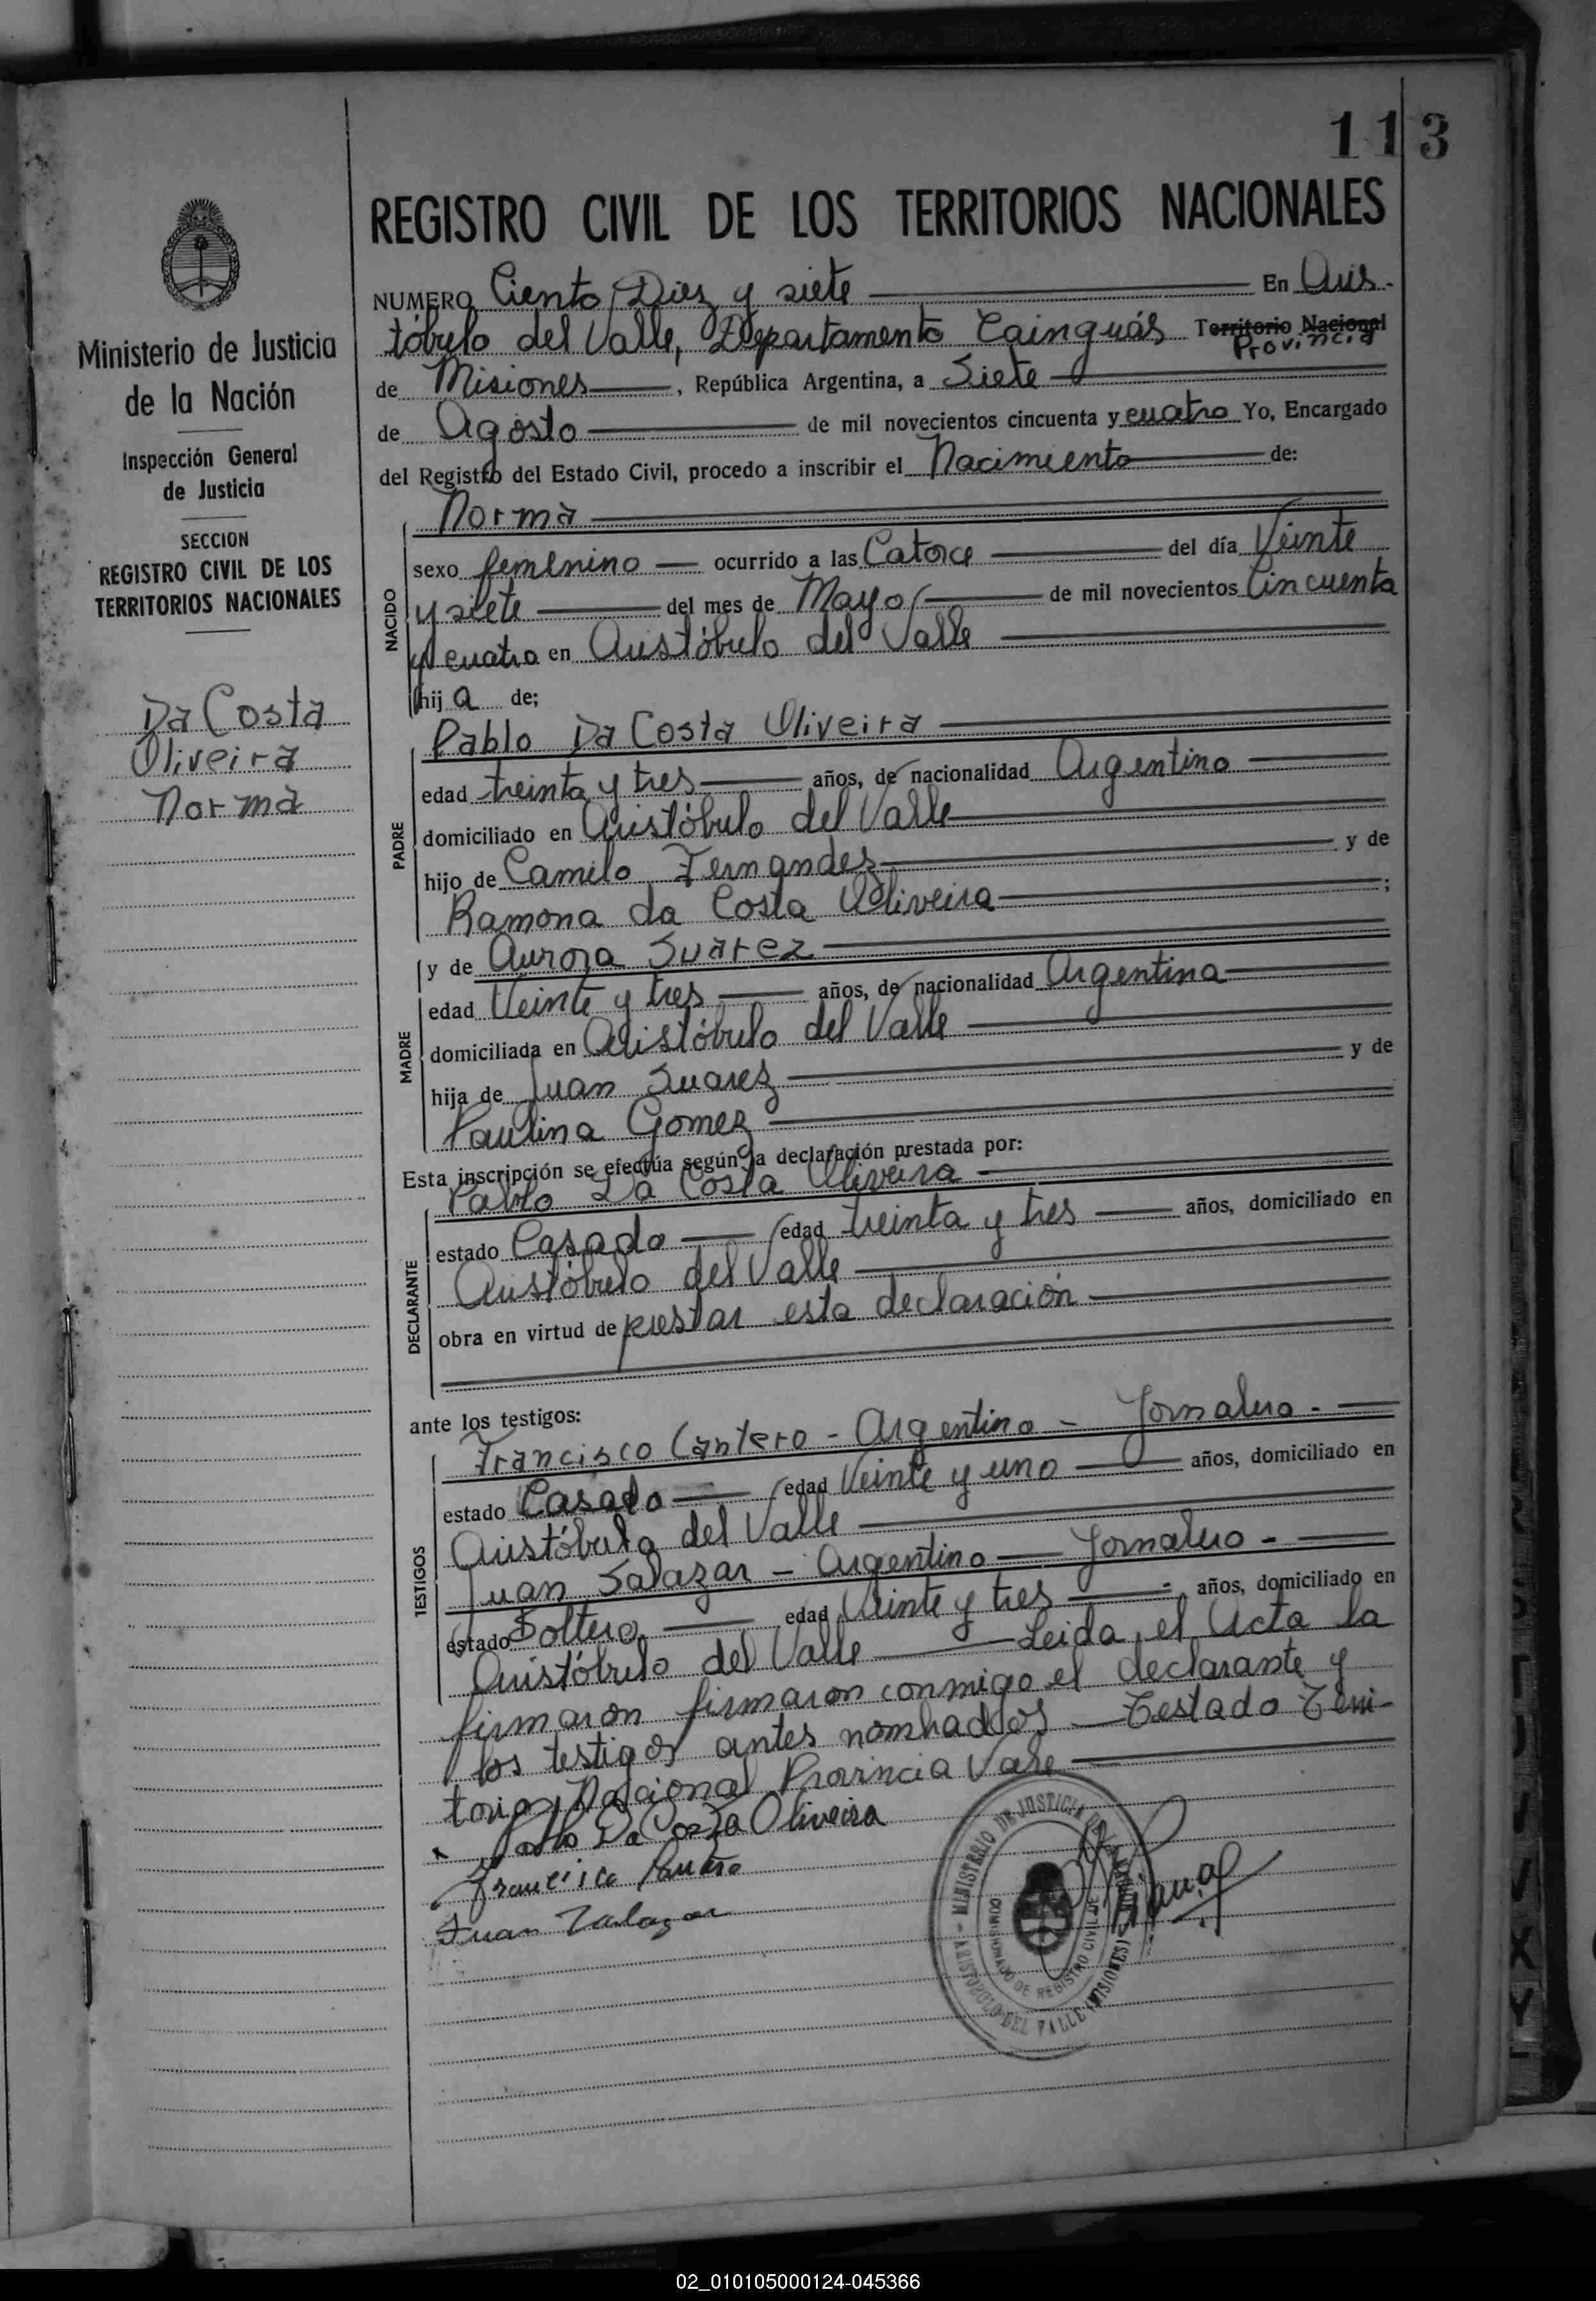 113
REGISTRO CIVIL DE LOS TERRITORIOS NACIONALES
Ministerio de Justicia
de la Nación
Inspección General
de Justicia
SECCION
REGISTRO CIVIL DE LOS
TERRITORIOS NACIONALES
Da Costa
Oliveira
Norma
NUMERO Ciento Diez y siete En Aris-
tóbulo del Valle, Departamento Cainguás Territorio Nacional
Provincia
de Misiones, República Argentina, a Siete
de Agosto de mil novecientos cincuenta y cuatro Yo, Encargado
del Registro del Estado Civil, procedo a inscribir el Nacimiento de:
NACIDO
Norma
sexo femenino ocurrido a las Catorce del día Veinte
y siete del mes de Mayo de mil novecientos Cincuenta
y cuatro en Aristóbulo del Valle
hija de;
PADRE
Pablo Da Costa Oliveira
edad treinta y tres años, de nacionalidad Argentino
domiciliado en Aristóbulo del Valle
hijo de Camilo Fernandez y de
Ramona da Costa Oliveira ;
MADRE
y de Aurora Suarez
edad Veinte y tres años, de nacionalidad Argentina
domiciliada en Aristóbulo del Valle
hija de Juan Suarez y de
Paulina Gomez
Esta inscripción se efectúa según la declaración prestada por:
DECLARANTE
Pablo Da Costa Oliveira
estado Casado edad treinta y tres años, domiciliado en
Aristóbulo del Valle
obra en virtud de prestar esta declaración
ante los testigos:
TESTIGOS
Francisco Cantero - Argentino - Jornalero.-
estado Casado edad Veinte y uno años, domiciliado en
Aristóbulo del Valle
Juan Salazar - Argentino - Jornalero -
estado Soltero edad Veinte y tres años, domiciliado en
Aristóbulo del Valle Leida el Acta la
firmaron firmaron conmigo el declarante y
los testigos antes nombrados - Testado Terri-
torio Nacional Provincia Vale
Pablo Da Costa Oliveira
Francisco Cantero
Juan Salazar
MINISTERIO DE JUSTICIA DE LA
ARISTOBULO DEL VALLE (MISIONES)
DE REGISTRO CIVIL
02_010105000124-045366